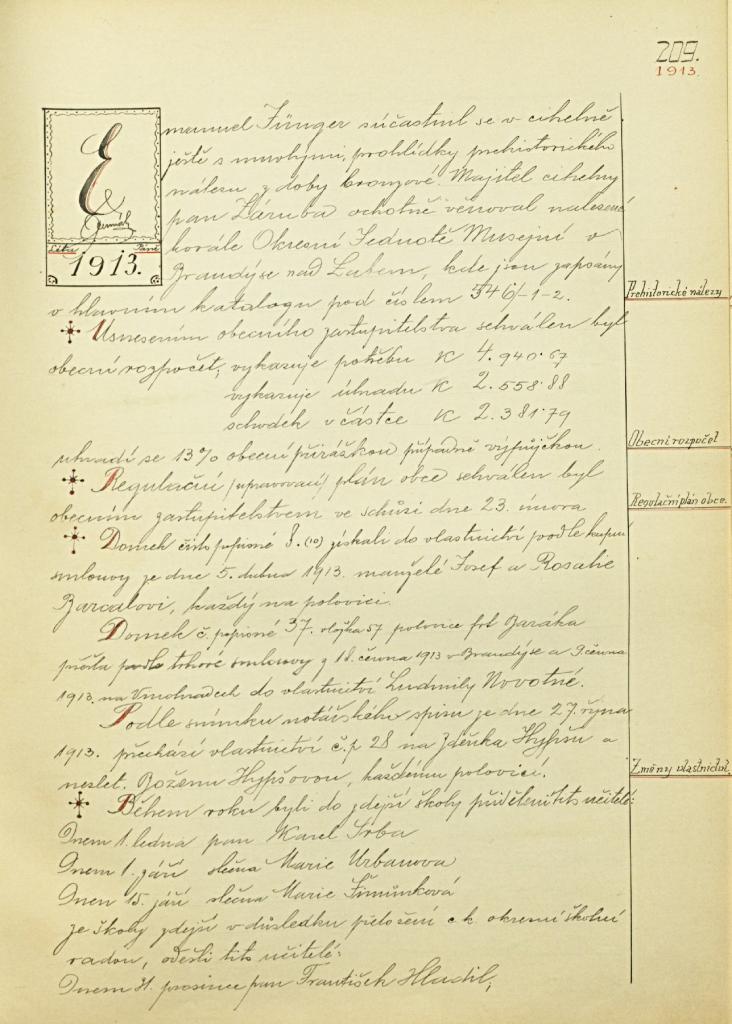 209.
1913.
Emanuel Fünger súčastnil se v cihelně
ještě s mnohými, prohlídky prehistorického
nálezu z doby bronzové. Majitel cihelny
pan Záruba ochotně věnoval nalezené
korále Okresní Jednotě Musejní v
Léta Páně
1913.
Brandýse nad Labem, kde jsou zapsány
v hlavním katalogu pod číslem 546/-1-2.
Prehistorické nálezy
Usnesením obecního zastupitelstva schválen byl
obecní rozpočet, vykazuje potřebu K 4.940·67
vykazuje úhradu K 2.558·88
schodek v částce K 2.381·79
uhradí se 13% obecní přirážkou případně výpůjčkou.
Obecní rozpočet
Regulační (upravovací) plán obce schválen byl
obecním zastupitelstvem ve schůzi dne 23. února
Regulační plán obce.
Domek číslo popisné 8. (10) získali do vlastnictví podle kupní
smlouvy ze dne 5. dubna 1913. manželé Josef a Rosalie
Barcalovi, každý na polovici.
Domek č. popisné 37. vložka 57 polovice
přešla podle trhové smlouvy z 18. června 1913 v Brandýse a 9 června
1913. na Vinohradech do vlastnictví Ludmily Novotné.
Podle snímku notářského spisu ze dne 27. října
1913. přechází vlastnictví č.p. 28 na Zdeňka Hypšu a
nezlet. Boženu Hypšovou, každému polovicí.
Změny vlastnictví.
Během roku byli do zdejší školy přiděleni tito učitelé:
Dnem 1. ledna pan Karel Srba
Dnem 1. září slečna Marie Urbanova
Dnem 15. září slečna Marie Šimůnková
ze školy zdejší v důsledku přeložení c.k. okresní školní
radou, odešli tito učitelé:
Dnem 31. prosince pan František Hladil,